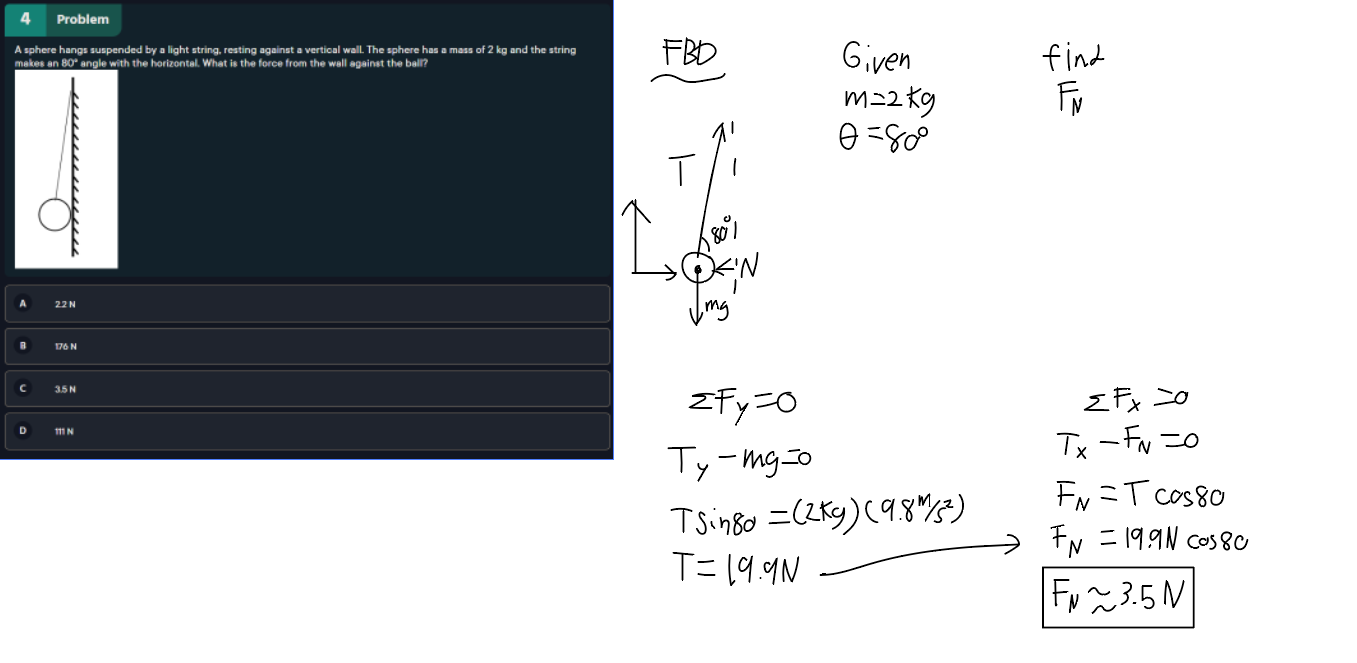 4 Problem
A sphere hangs suspended by a light string, resting against a vertical wall. The sphere has a mass of 2 kg and the string
makes an 80° angle with the horizontal. What is the force from the wall against the ball?
A 2.2 N
B 176 N
C 3.5 N
D 111 N
FBD
T
80°
N
mg
Given
m=2kg
θ=80°
find
F_N
ΣFy=0
Ty-mg=0
Tsin80=(2kg)(9.8m/s²)
T=19.9N
ΣFx=0
Tx-F_N=0
F_N=Tcos80
F_N=19.9Ncos80
F_N≈3.5N